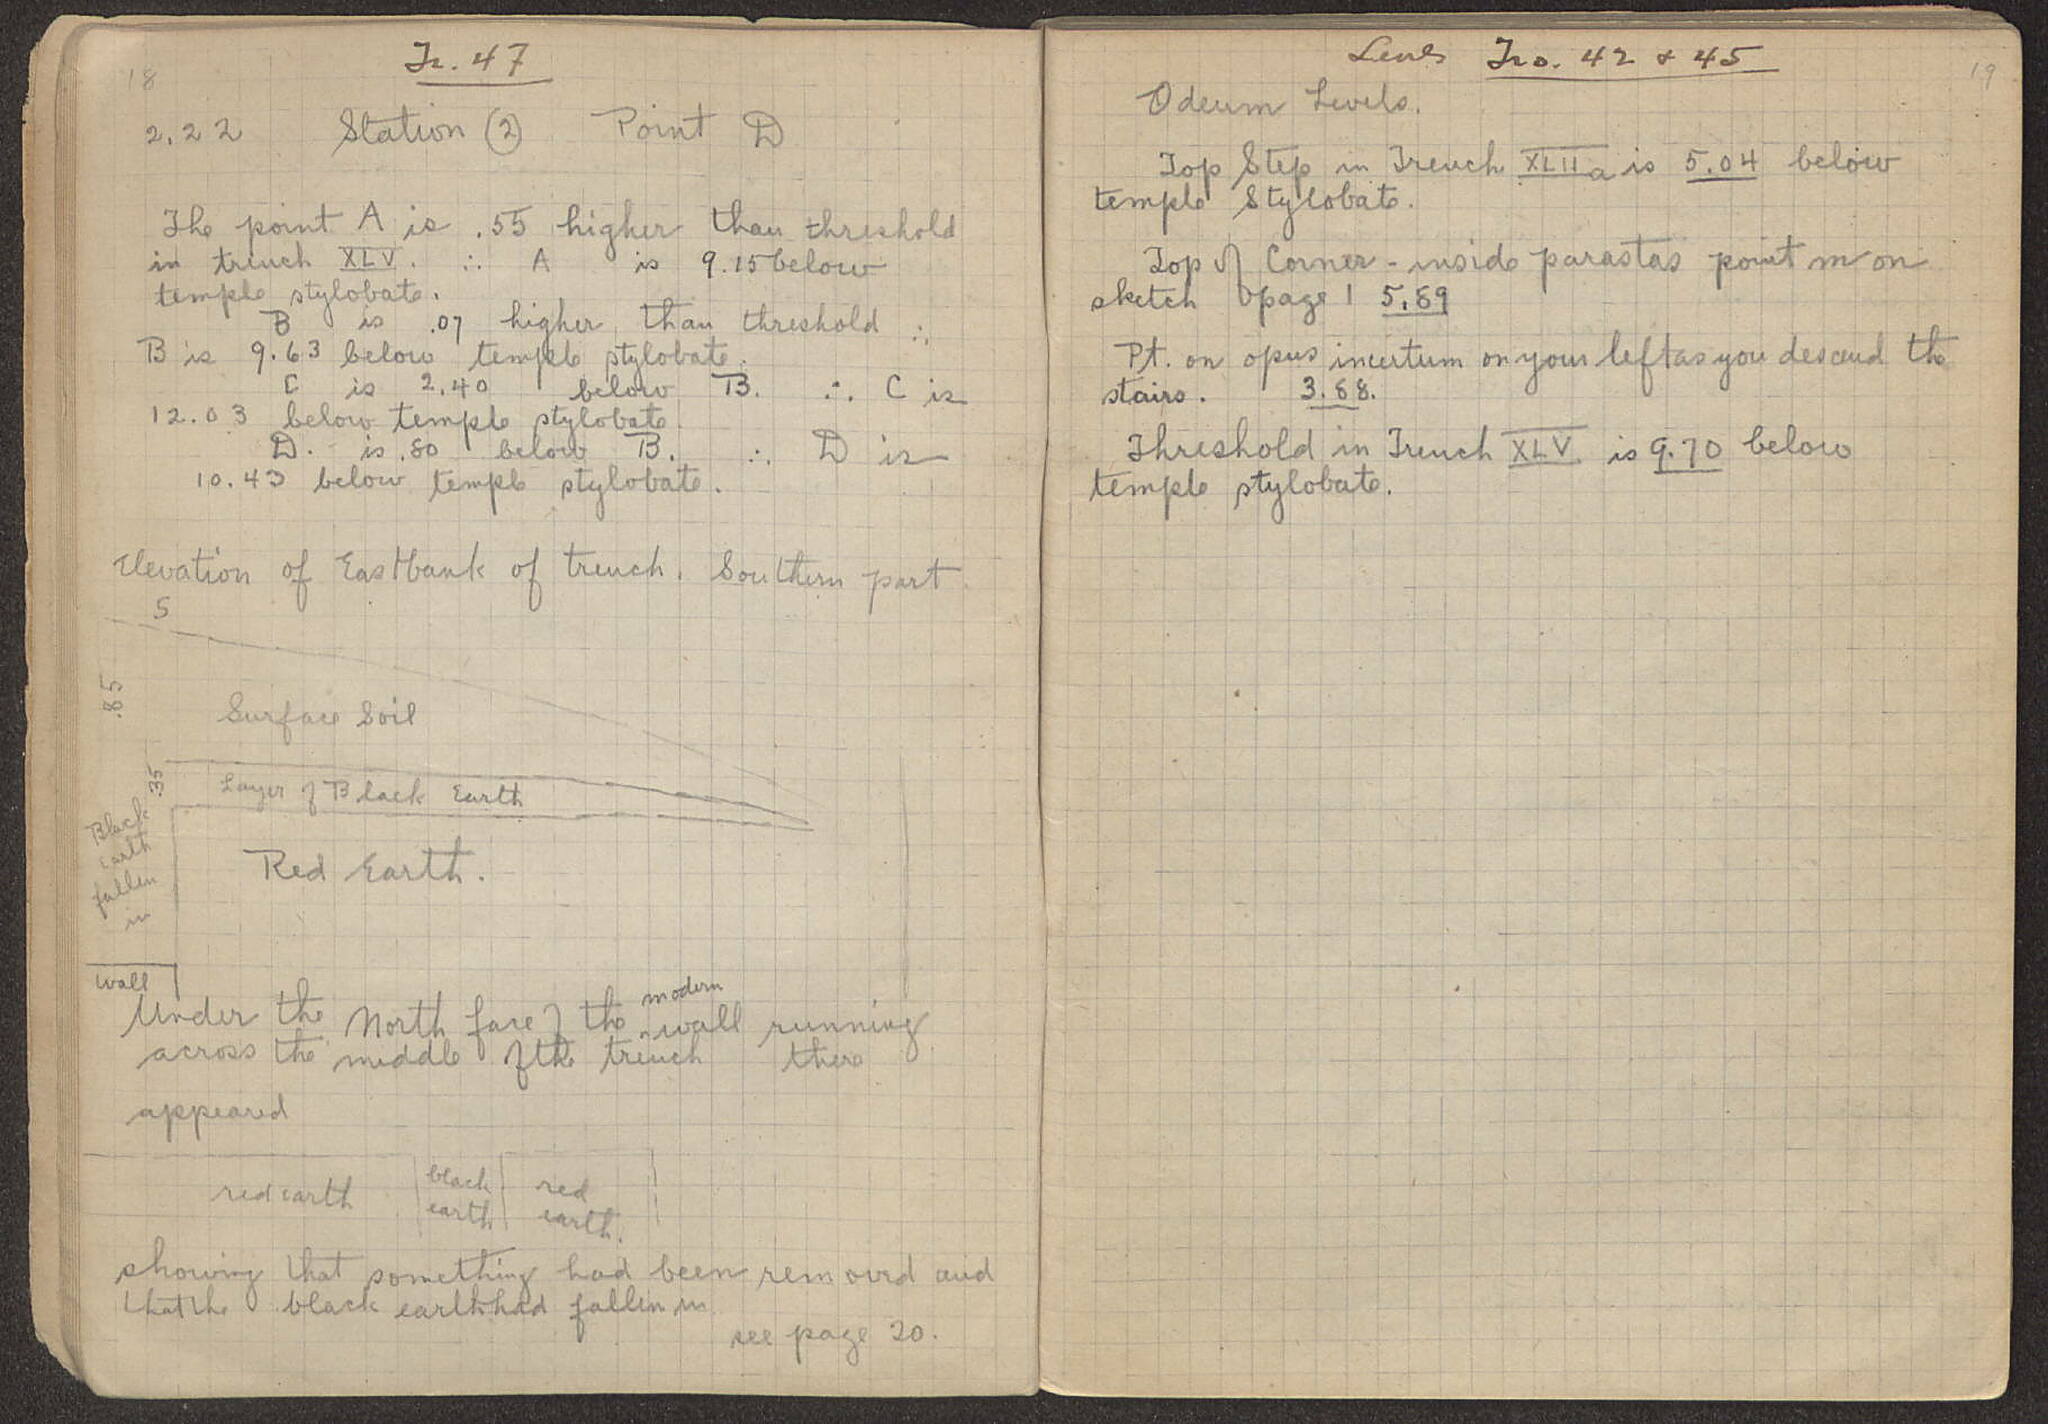 18
Tr. 47
2.22 Station (2) Point D
The point A is .55 higher than threshold
in trench XLV. ∴ A is 9.15 below
temple stylobate.
B is .07 higher than threshold ∴
B is 9.63 below temple stylobate.
C is 2.40 below B. ∴ C is
12.03 below temple stylobate.
D. is .80 below B. ∴ D is
10.43 below temple stylobate.
Elevation of East bank of trench. Southern part
S
.85
Surface Soil
.35
Layer of Black Earth
Black
Earth
fallen
in
Red Earth.
Wall
Under the North face of the modern wall running
across the middle of the trench there
appeared
red earth
black
earth
red
earth.
showing that something had been removed and
that the black earth had fallen in
see page 20.
19
Levels Trs. 42 & 45
Odeum Levels.
Top Step in Trench XLII a is 5.04 below
temple Stylobate.
Top of Corner - inside parastas point m on
sketch page 1 5.89
Pt. on opus incertum on your left as you descend the
stairs. 3.88.
Threshold in Trench XLV is 9.70 below
temple stylobate.